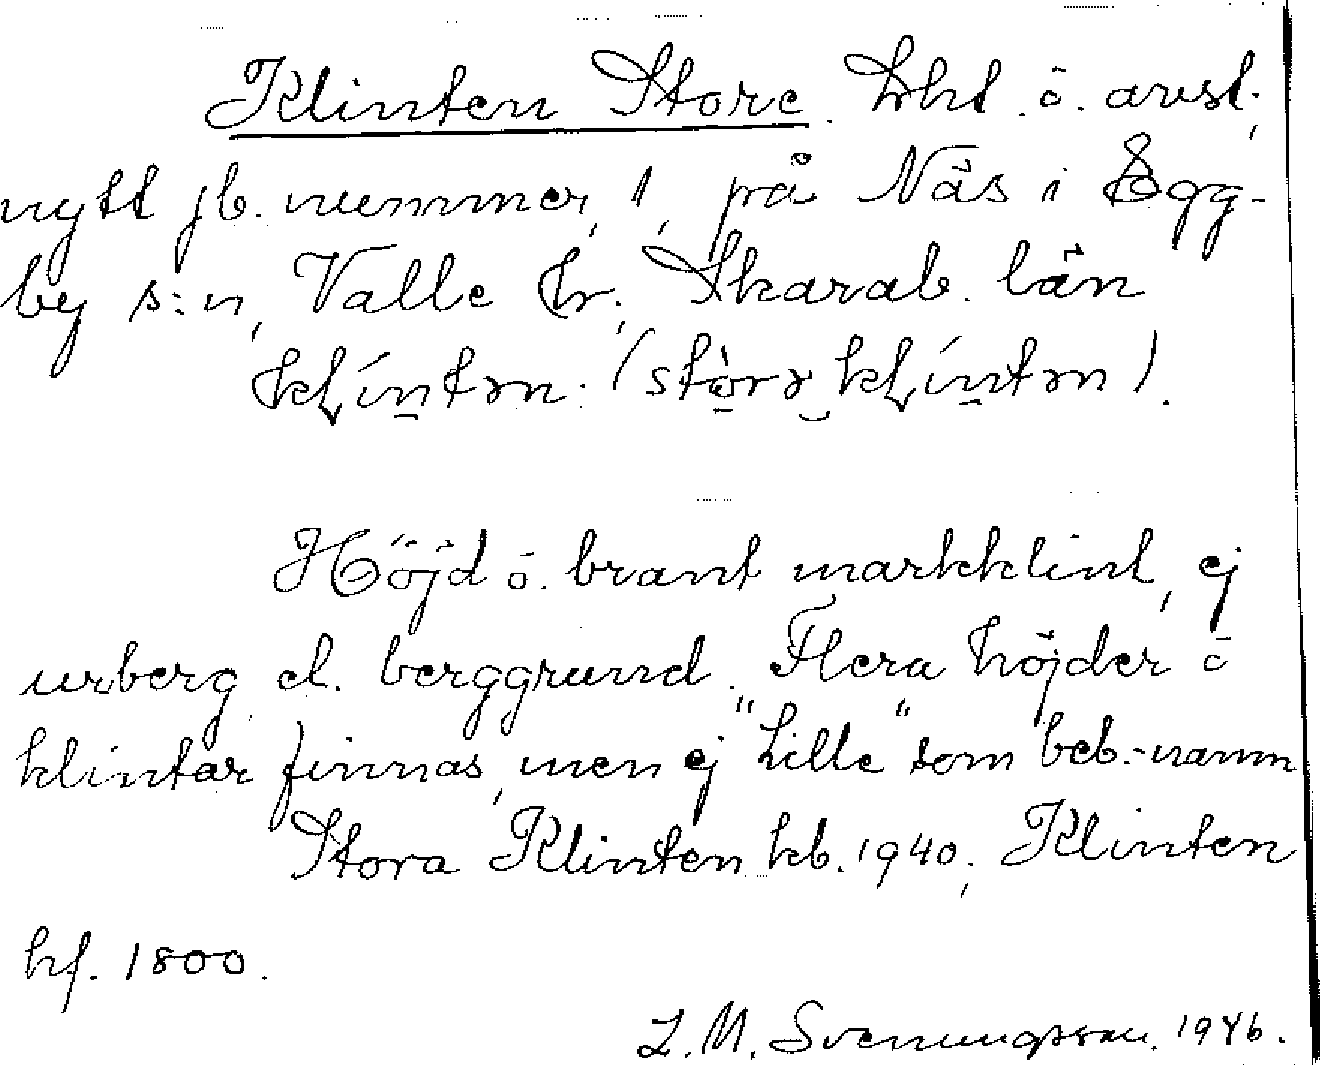 Klinten Store. Lht. o. avst.,
nytt jb. nummer, 1, på Näs i Egg-
by s:n, Valle hr, Skarab. län
klíntən. (stòrə klíntən).
Höjd o. brant markklint, ej
urberg el. berggrund. Flera höjder o
klintar finnas, men ej "Lille" som beb.-namn
Stora Klinten kb. 1940; Klinten
hf. 1800.
L. M. Svenungsson. 1946.